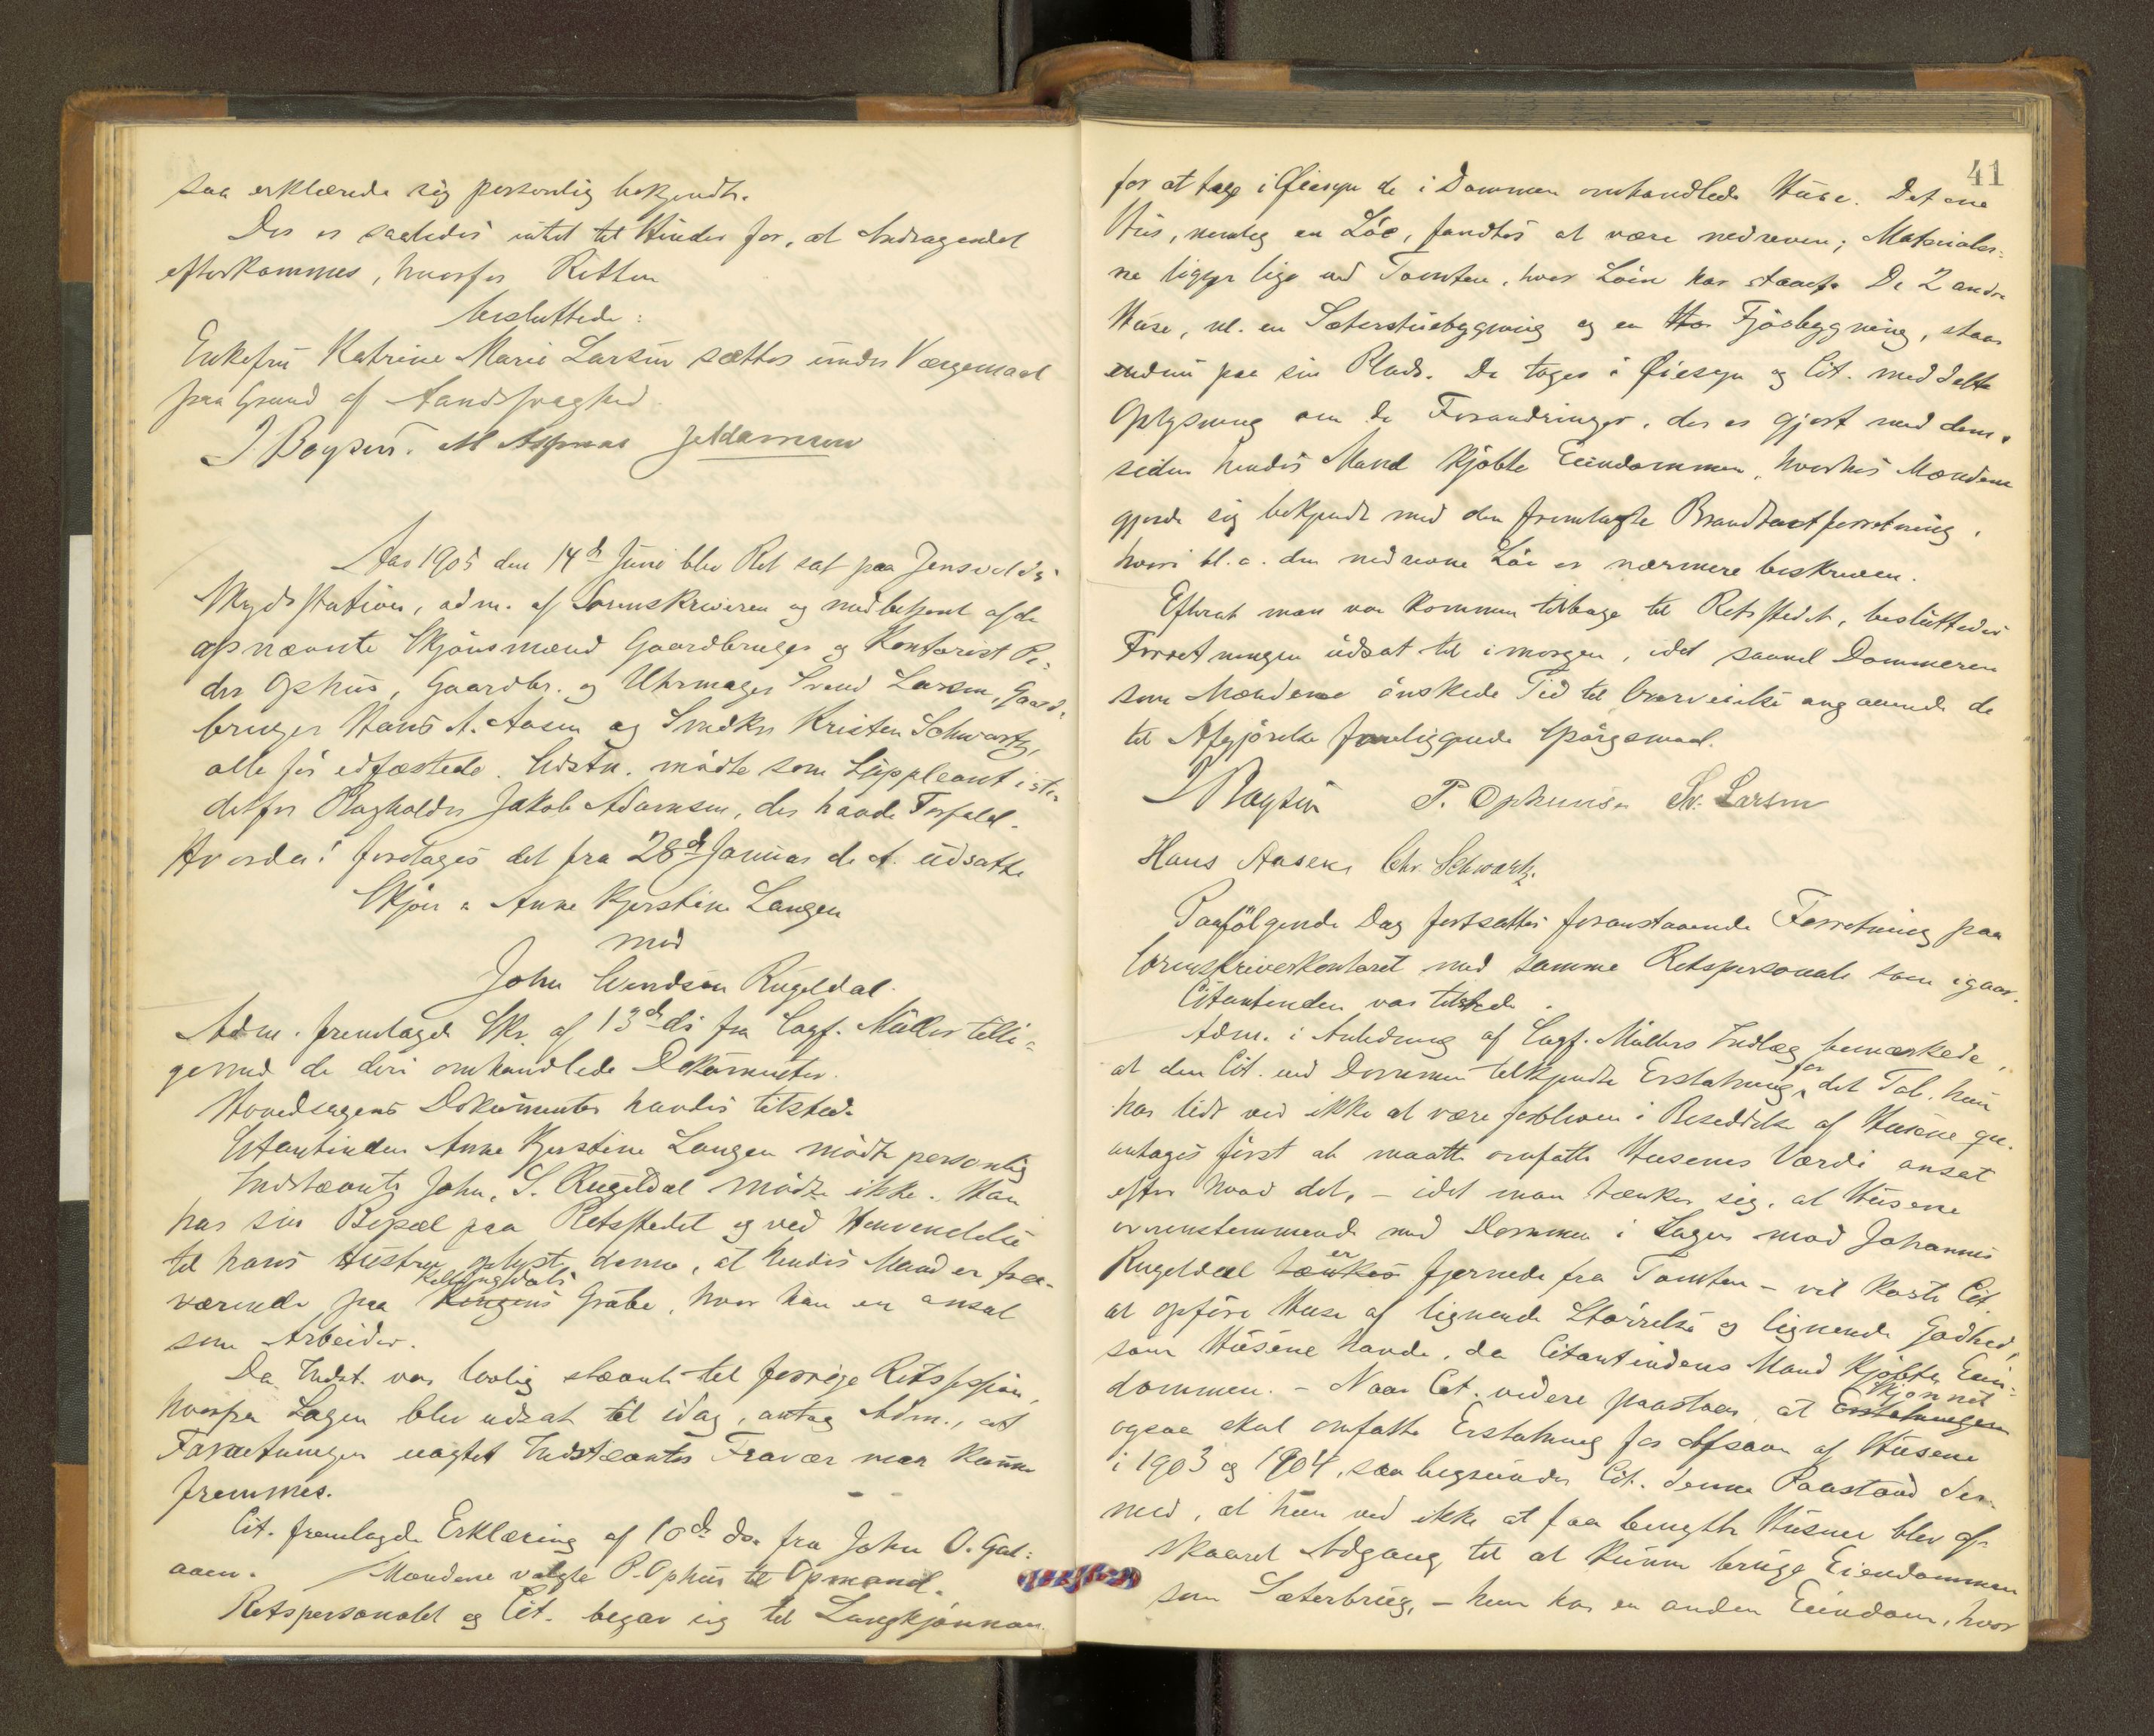 saa erklærede sig personlig bekjendt.
Der er saaledes intet til Hinder for, at Andragendet
efterkommes, hvorfor Retten
besluttede:
Enkefru Katrine Marie Larsen sættes under Værgemaal
paa Grund af Aandssvaghed.
J. Boysen. M Aspaas
Aar 1905 den 14de Juni blev Ret sat paa Jensvolds
Skydsstation, adm. af Sorenskriveren og medbetjent af de
opnævnte Skjønsmænd Gaardbruger og Kontorist Pe-
der Ophus, Gaardbr. og Uhrmager Svend Larsen, Gaard-
bruger Hans A. Aasen og Snedker Kristen Schwartz,
alle før edfæstede. Sidstn. mødte som Suppleant iste-
detfor Bagholder Jakob Adamsen, der havde Forfald.
Hvorda: foretoges det fra 28de Januar d. A. udsatte
Skjøn: Anne Kjerstine Langen
mod
John Svendsen Rugeldal.
Adm. fremlagde Skr. af 13de ds fra Sagf. Müller tilli-
gemed de deri omhandlede Dokumenter.
Hovedsagens Dokumenter havdes tilstede.
Citantinden Anne Kjerstine Langen mødte personlig
Indstævnte John S. Rugeldal mødte ikke. Han
har sin Bopæl paa Retsstedet og ved Henvendelse
til hans Hustru oplyste denne, at hendes Mand er fra-
værende paa Kongens Kellingdals Grube, hvor han er ansat
som Arbeider.
Da Indst. var lovlig stævnt til forrige Retssession,
hvorfra Sagen blev udsat til idag, antog Adm., at
Forretningen uagtet Indstævntes Fravær maa kunne
fremmes.
Cit. fremlagde Erklæring af 10de ds. fra John O. Gal-
aaen. Mændene valgte P. Ophus til Opmand.
Retspersonalet og Cit. begav sig til Langkjønnan
41
for at tage i Øiesyn de i Dommen omhandlede Huse. Det ene
Hus, nemlig en Löe, fandtes at være nedreven; Materialer-
ne ligger lige ved Tomten, hvor Löen har staaet. De 2 andre
Huse, nl. en Sæterstuebygning og en Fjösbygning, staar
endnu paa sin Plads. De toges i Øiesyn og Cit. meddelte
Oplysning om de Forandringer, der er gjort med dem,
siden hendes Mand kjøbte Eiendommen, hvorhos Mændene
gjorde sig bekjendt med den fremlagte Brandtaxtforretning,
hvori bl. a. den nedrevne Löe er nærmere beskreven.
Efterat man var kommen tilbage til Retsstedet, besluttedes
Forretningen udsat til imorgen, idet saavel Dommeren
som Mændene ønskede Tid til Overveielse angaaende de
til Afgjørelse foreliggende Spørgsmaal.
J Boysen P. Ophus Sv. Larsen
Hans Aasen Chr. Schwartz.
Paafølgende Dag fortsattes foranstaaende Forretning paa
Sorenskriverkontoret med samme Retspersonale som igaar.
Citantinden var tilstede.
Adm. i Anledning af Sagf. Müllers Indlæg bemærkede,
at den Cit. ved Dommen tilkjendte Erstatning for det Tab, hun
har lidt ved ikke at være forbleven i Besiddelse af Husene qu.
antages først at maatte omfatte Husenes Værdi ansat
efter hvad det, - idet man tænker sig, at Husene
overensstemmende med Dommen i Sagen mod Johannes
Rugeldal tænkes er fjernede fra Tomten - vil koste Cit.
at opføre Huse af lignende Størrelse og lignende Godhed,
som Husene havde, da Citantindens Mand kjøbte Eien-
dommen. - Naar Cit. videre paastaar, at Erstatningen Skjønnet
ogsaa skal omfatte Erstatning for Afsavn af Husene
i 1903 og 1904, saa begrunder Cit. denne Paastand der-
med, at hun ved ikke at faa benytte Husene blev af-
skaaret Adgang til at kunne bruge Eiendommen
som Sæterbrug, - hun har en anden Eiendom, hvor